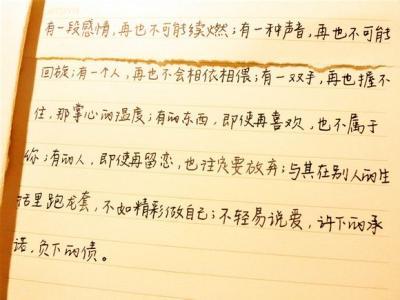 有一段感情，再也不可能续燃；有一种声音，再也不可能
回放；有一个人，再也不会相依相偎；有一双手，再也握不
住，那掌心的温度；有的东西，即使再喜欢，也不属于
你；有的人，即使再留恋，也注定要放弃；与其在别人的生
活里跑龙套，不如精彩做自己；不轻易说爱，许下的承
诺，负下的债。